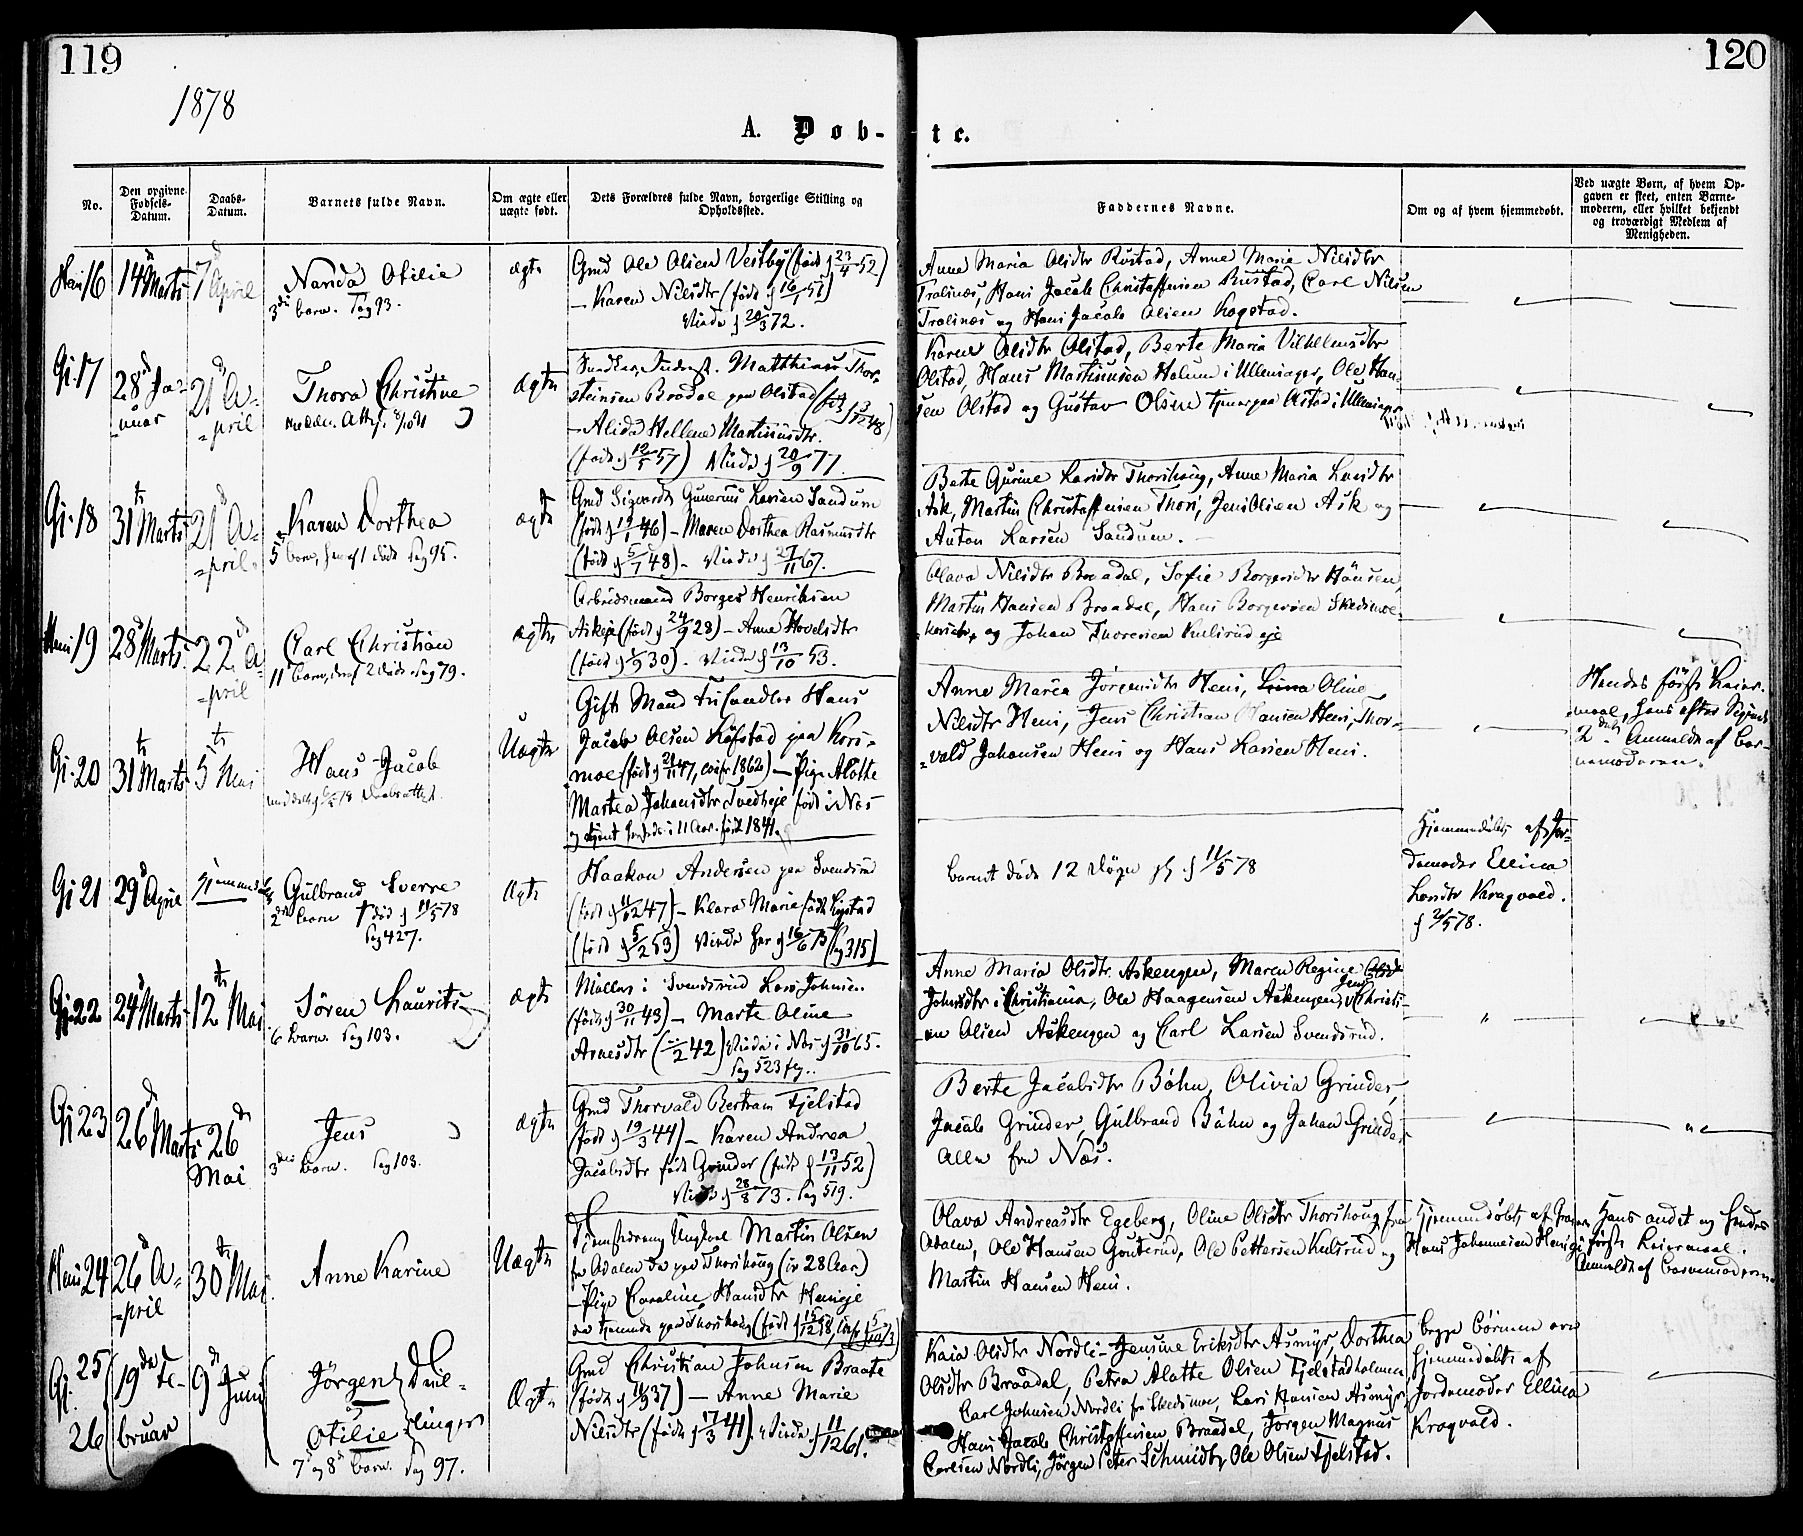 119
120
1878
A. Døb-
te.
No.
Den opgivne Fødsels-Datum.
Daabs-Datum.
Barnets fulde Navn.
Om ægte eller uægte født.
Dets Forældres fulde Navn, borgerlige Stilling og Opholdssted.
Faddernes Navne.
Om og af hvem hjemmedøbt.
Ved uægte Børn, af hvem Op-
gaven er skeet, enten Barne-
moderen, eller hvilket bekjendt
og troværdigt Medlem af
Menigheden.
16
14 Marts
7 April
Nanda Otilie
3die barn. Pag 93.
ægte
Gmd Ole Olsen Vestby (født d 23/4 52)
– Karen Nilsdtr (født d 16/1 51)
Viede d 20/3 72.
Anne Maria Olsdtr Rustad, Anne Marie Nilsdtr
Hans Jacob Christoffersen Rustad, Carl Nilsen
og Hans Jacob Olsen Kogstad.
Gj. 17
28 Ja-
nuar
21 A-
pril
Thora Christine
ægte
Matthias Thor-
steinsen Braadal paa Olstad
– Alida Hellene Martinusdtr.
(født d 12/5 57) Viede d 20/9 77.
Karen Olsdtr Olstad, Berte Maria Vilhelmsdtr
Olstad, Hans Martinusen Holum i Ullensager, Ole Han-
sen Olstad og Gustav Olsen tjener paa Olstad i Ullensager
Gj. 18
31 Marts
21 A-
pril.
Karen Dorthea
5te barn, heraf 1 død. Pag 95.
ægte
Gmd Sigvardt Gunerius Larsen Sandum
(født d 19/1 46) – Maren Dorthea Rasmusdtr
(født d 5/7 48) – Viede d 27/11 67.
Berte Gurine Larsdtr Thorshoug, Anne Maria Larsdtr
Ask, Martin Christoffersen Thori, Jens Olsen Ask og
Anton Larsen Sandum.
19
28 Marts
22 A-
pril
Carl Christian
11 barn, deraf 2 døde. Pag 79.
ægte
Arbeidsmand Borger Henriksen
Askeje (født d 24/9 28) – Anne Hovelsdtr
(født d /9 30). Viede d 13/10 53.
Olava Nilsdtr Braadal, Sofie Borgersdtr Hansen,
Martin Hansen Braadal, Hans Borgersen Skedsmoe
og Johan Thoresen Kulsrud eje
Gj. 20
31 Marts
5 Mai
Hans Jacob
Uægte
Gift Mand Hans
Jacob Olsen Kofstad paa Kors-
moe – Pige Alotte
Martea Johansdtr Tvedteje født i Næs
født 1841.
Anne Maria Jørgensdtr Heni, Oline
Nilsdtr Heni, Jens Christian Hansen Heni, Thor-
vald Johansen Heni og Hans Larsen Heni.
Hendes første Leier-
maal, hans efter
2det. Anmeldt af Bar-
nemoderen.
Gj 21
29 April
Gulbrand Sverre
2det barn † død d 11/5 78
Pag 427.
ægte
Haakon Andersen paa Svendsrud
– Klara Marie født Kogstad
(født d 5/2 53) Viede her d 16/6 75 (Pag 315)
barnet døde 12 Døgn gl. d 11/5 78
Hjemmedøbt af Jor-
demoder Ellina
Larsdtr Kragvold.
d 2/5 78.
Gj. 22
24 Marts
12 Mai
Søren Laurits
6 barn. Pag 103.
ægte
Møller i Svendsrud Lars Johnsen
(født d 30/11 43) – Marte Oline
Arnesdtr (/2 42) Viede i Næs d 31/10 65.
Pag 523
Anne Maria Olsdtr Askengen, Maren Regine
Johnsdtr i Christiania, Ole Haagensen Askengen, Jens Christi-
an Olsen Askengen og Carl Larsen Svendsrud.
Gj 23
26 Marts
26
Mai
Jens
3die barn. Pag 103.
ægte
Gmd Thorvald Bertram Fjelstad
(født d 19/3 44) – Karen Andrea
Jacobsdtr født Grinder (født d 13/11 52)
Viede d 28/8 73. Pag 519.
Berte Jacobsdtr Bøhn, Olivia Grinder,
Jacob Grinder, Gulbrand Bøhn og Johan Grinder
Alle fra Næs.
24
26 A-
pril
30 Mai
Anne Karine
Uægte
Ungkarl Martin Olsen
fra Odalen da paa Thorshoug (ca 28 Aar)
– Pige Caroline Hansdtr Henieje
da tjenende paa Thorshoug
Olava Andreasdtr Egeberg, Oline Olsdtr Thorshoug fra
Odalen, Ole Hansen Gouterud, Ole Pettersen Kulsrud og
Martin Hansen Heni.
Hjemmedøbt af
Hans Johannesen
Hans andet og hendes
første Leiermaal.
Anmeldt af Barnemoderen
Gj.
25
26
19 Fe-
bruar
9 Juni
Jørgen
Otilie
Tvil-
linger
7 og 8 barn. Pag 97.
Ægte
Gmd Christian Johnsen Braate
– Anne Marie
Nilsdtr (født d 17/3 41). Viede d 11/12 61.
Kaia Olsdtr Nordli – Jensine Eriksdtr Asmyr, Dorthea
Olsdtr Braadal, Petra Alotte Olsen Fjelstadholmen
Carl Johnsen Nordli fra Skedsmoe, Lars Hansen Asmyr,
Hans Jacob Christoffersen Braadal, Jørgen Magnus
Carlsen Nordli, Jørgen Peter Schmidt, Ole Olsen Fjelstad.
begge Børnene ere
hjemmedøbt af
Jordemoder Ellina
Kragvold.